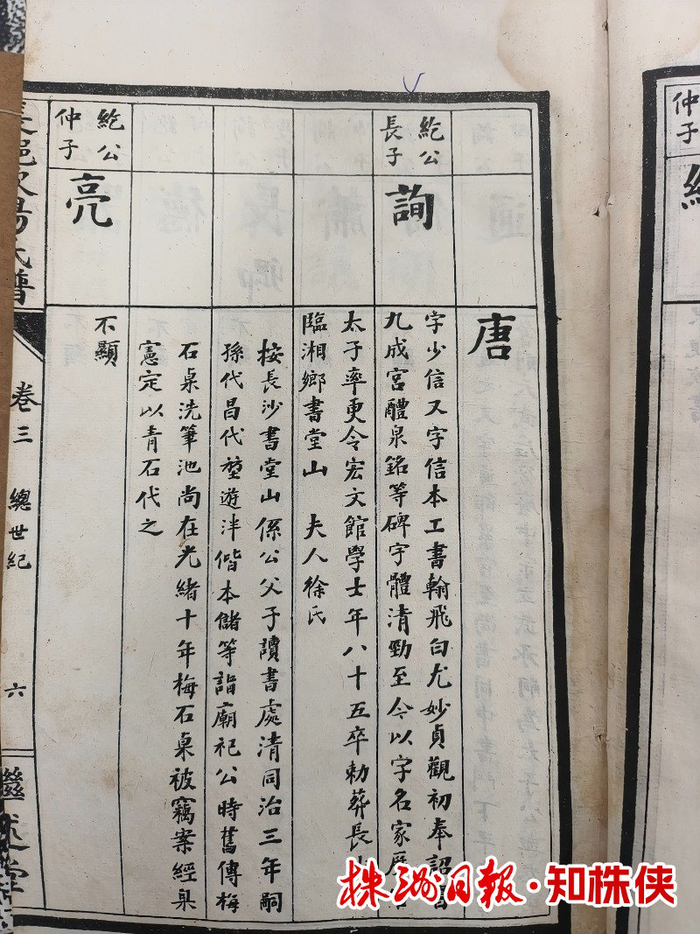 仲子
紀
唐
紇公
長子
詢
字少信又字信本工書翰飛白尤妙貞觀初奉詔書
九成宮醴泉銘等碑字體清勁至今以字名家歷官
太子率更令宏文館學士年八十五卒勅葬長
臨湘鄉書堂山 夫人徐氏
按長沙書堂山係公父子讀書處清同治三年嗣
孫代昌代堃遊泮偕本儲等詣廟祀公時舊傳梅
石桌洗筆池尚在光緒十年梅石桌被竊案經臬
憲定以青石代之
紇公
仲子
亮
不顯
卷三 總世紀 六
株洲日报·知株侠